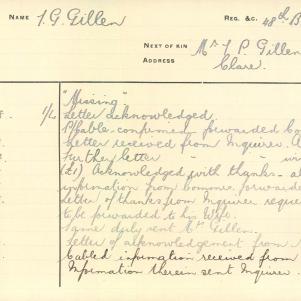 NAME I. G. Gillen REG. &C. 48th B
NEXT OF KIN Mr T P. Gillen
ADDRESS Clare.
"Missing"
1/4 Letter acknowledged.
Cable confirmed forwarded
Letter received from Inquirer. A
Further letter
(L1) Acknowledged with thanks - a
information from Commons forwarde
Letter of thanks from Inquirer reque
to be forwarded to his Wife.
Same duly sent Mrs Gillen.
Letter of acknowledgement from
Cabled information received from
Information therein sent Inquirer.